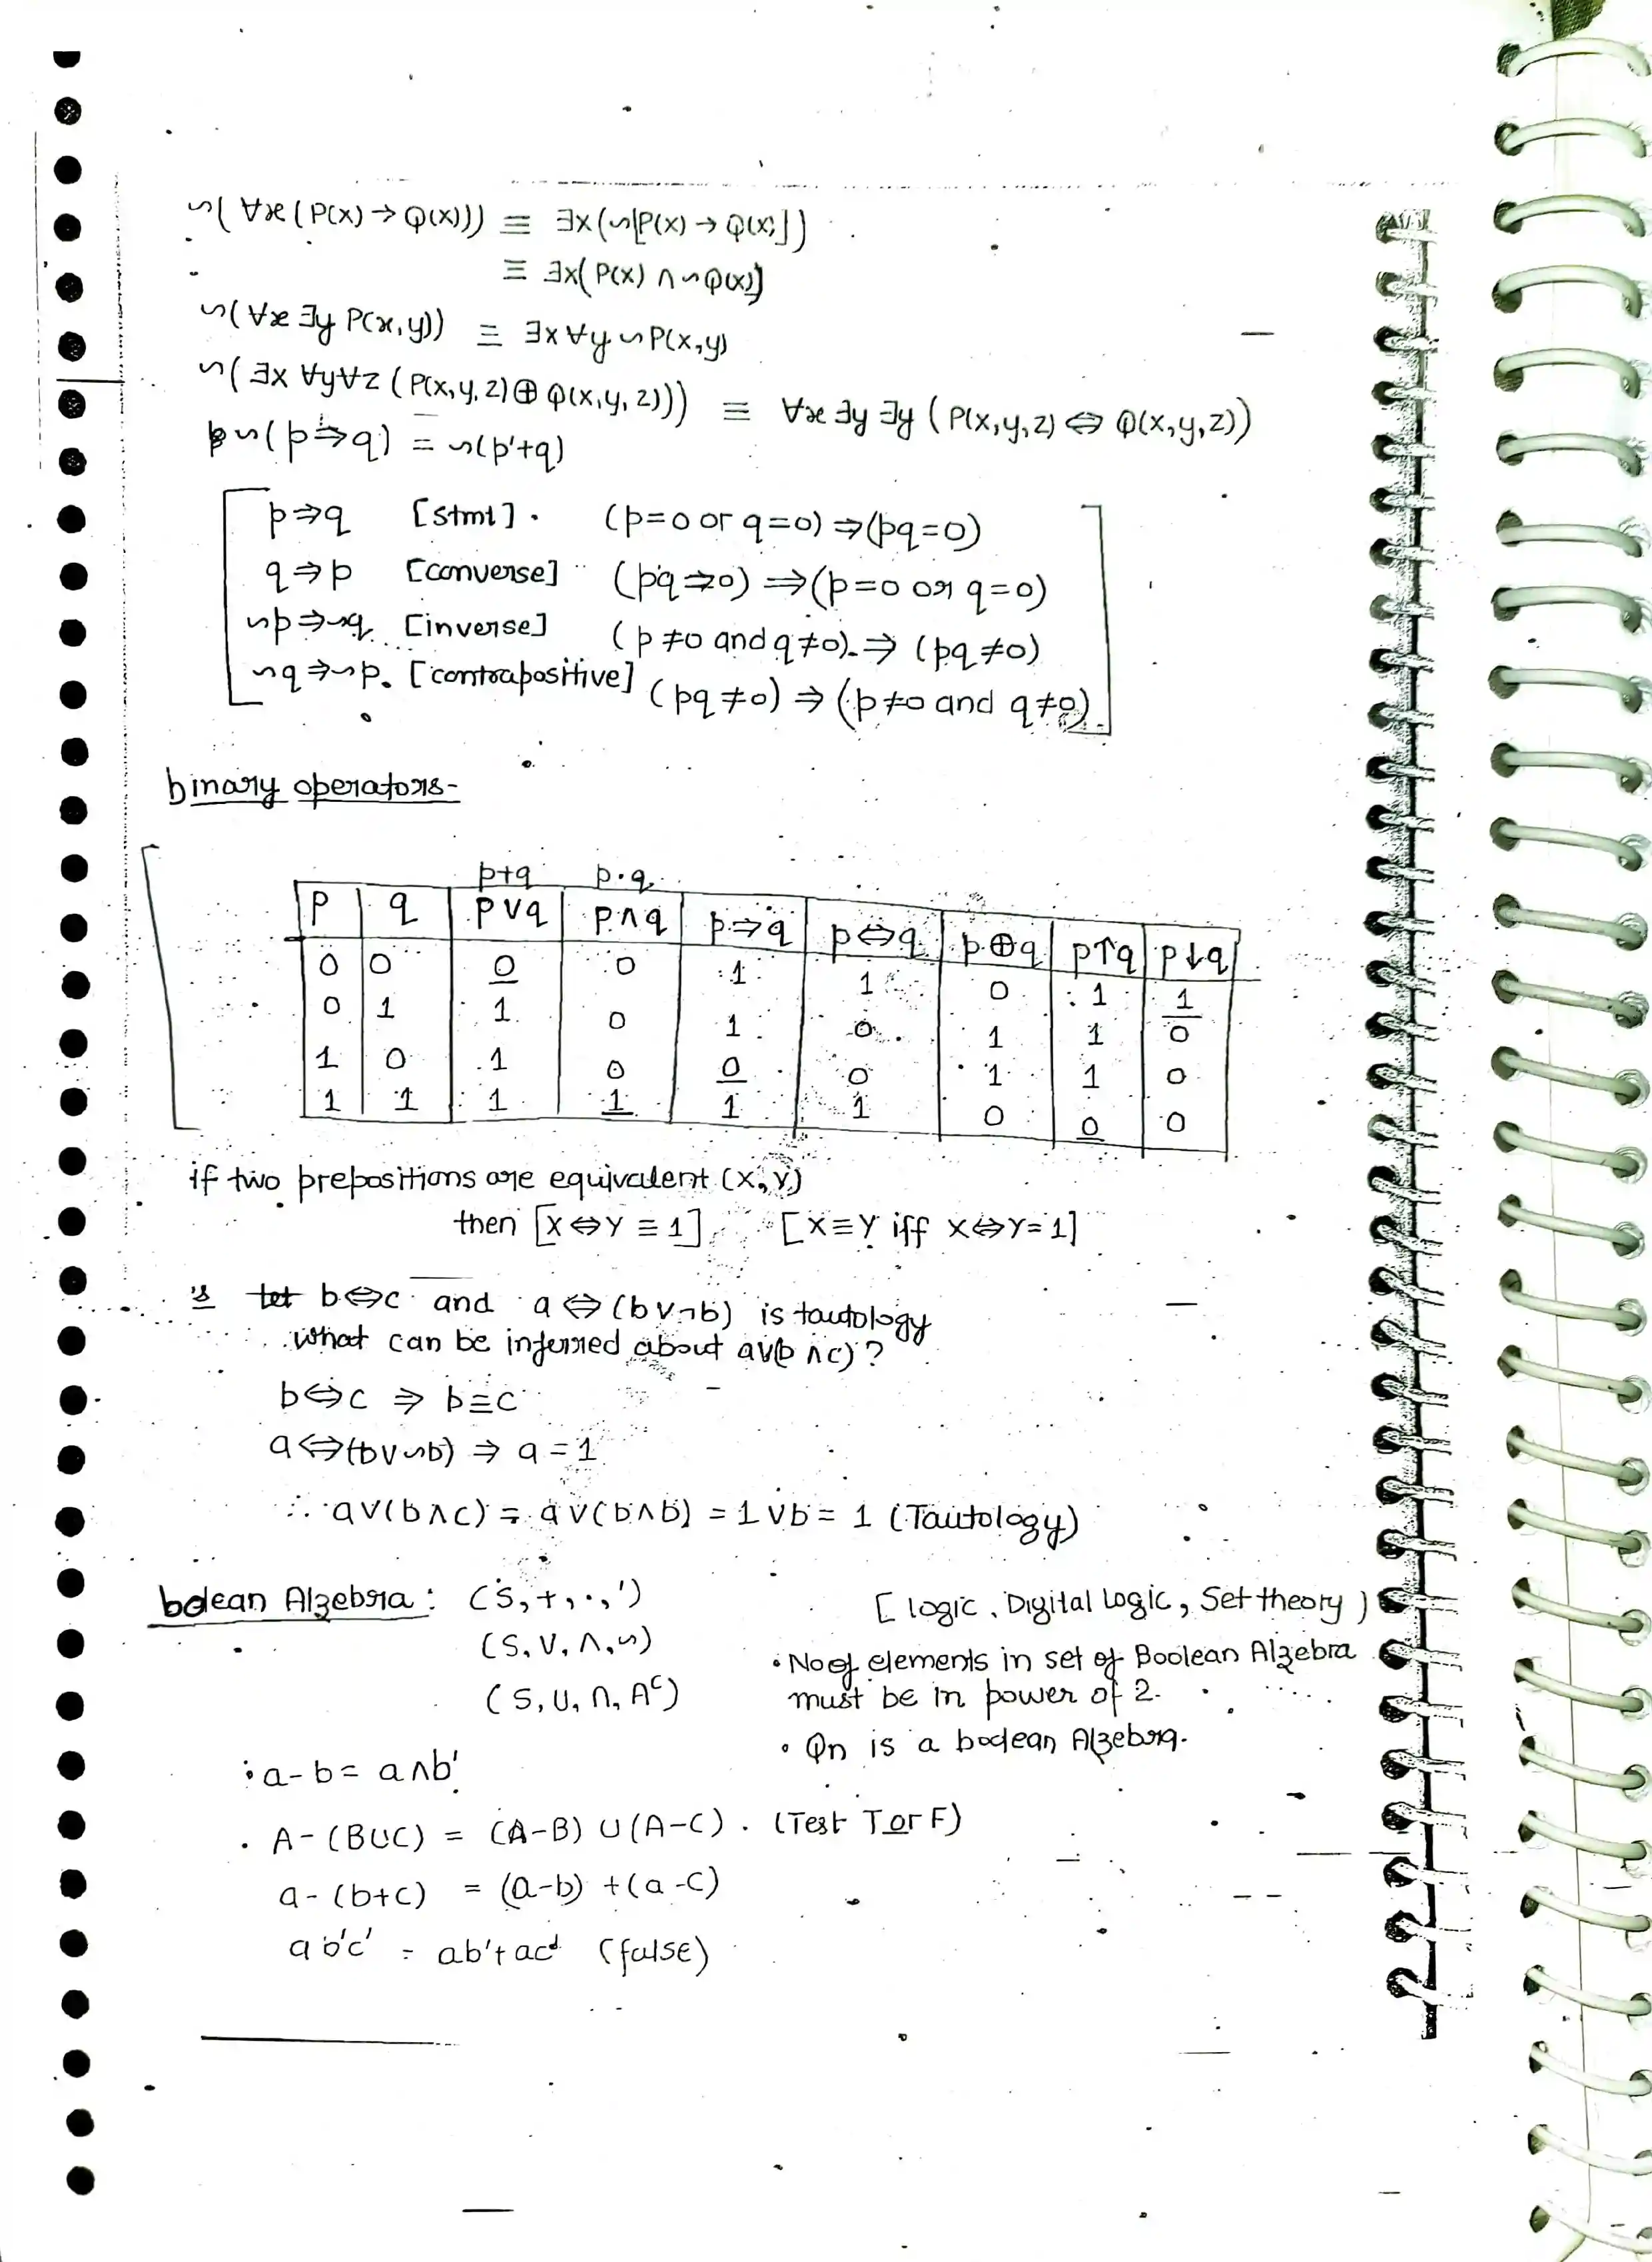 ~( ∀x ( P(x) → Q(x))) ≡ ∃x (~[P(x) → Q(x)])
≡ ∃x( P(x) ∧ ~Q(x)]
~(∀x ∃y P(x,y)) ≡ ∃x ∀y ~P(x,y)
~( ∃x ∀y∀z ( P(x,y,z) ⊕ Q(x,y,z))) ≡ ∀x ∃y ∃y ( P(x,y,z) ⇔ Q(x,y,z))
~(p⇒q) = ~(p'+q)
p⇒q [stmt]. (p=0 or q=0) ⇒(pq=0)
q⇒p [converse] (pq=0) ⇒(p=0 or q=0)
~p⇒~q [inverse] (p≠0 and q≠0) ⇒ (pq≠0)
~q⇒~p. [contrapositive] (pq≠0) ⇒ (p≠0 and q≠0)
binary operators-
p+q p·q
p q p∨q p∧q p⇒q p⇔q p⊕q p↑q p↓q
0 0 0 0 1 1 0 1 1
0 1 1 0 1 0 1 1 0
1 0 1 0 0 0 1 1 0
1 1 1 1 1 1 0 0 0
if two prepositions are equivalent (x,y)
then [x⇔y ≡ 1] [x≡y iff x⇔y=1]
b⇔c and a⇔(b∨¬b) is tautology
what can be inferred about a∨(b∧c)?
b⇔c ⇒ b≡c
a⇔(b∨~b) ⇒ a=1
∴ a∨(b∧c) = a∨(b∧b) = 1∨b = 1 (Tautology)
bolean Algebra: (S,+,·,') [ logic, Digital Logic, Set theory )
(S,∨,∧,~)
• No of elements in set of Boolean Algebra
(S,∪,∩,Aᶜ) must be in power of 2.
• Qn is a boolean Algebra.
• a-b= a∧b'
• A-(B∪C) = (A-B) ∪(A-C). (Test T or F)
a-(b+c) = (a-b) +(a-c)
ab'c' = ab'+ac' (false)